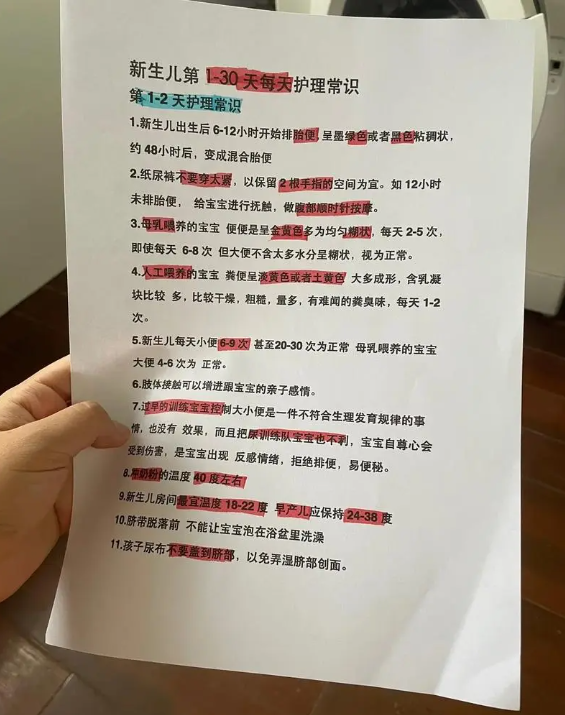 新生儿第 1-30 天每天护理常识
第 1-2 天护理常识
1.新生儿出生后 6-12小时开始排胎便, 呈墨绿色或者黑色粘稠状，
约 48小时后，变成混合胎便
2.纸尿裤不要穿太紧，以保留 2 根手指的空间为宜。如 12小时
未排胎便， 给宝宝进行抚触，做腹部顺时针按摩。
3.母乳喂养的宝宝 便便是呈金黄色多为均匀糊状，每天 2-5 次，
即使每天 6-8 次 但大便不含太多水分呈糊状，视为正常。
4.人工喂养的宝宝 粪便呈淡黄色或者土黄色 大多成形，含乳凝
块比较 多，比较干燥，粗糙，量多，有难闻的粪臭味，每天 1-2
次。
5.新生儿每天小便 6-9 次 甚至20-30 次为正常 母乳喂养的宝宝
大便 4-6 次为 正常。
6.肢体接触可以增进跟宝宝的亲子感情。
7.过早的训练宝宝控制大小便是一件不符合生理发育规律的事
情，也没有 效果，而且把尿训练队宝宝也不利，宝宝自尊心会
受到伤害，是宝宝出现 反感情绪，拒绝排便，易便秘。
8.带奶粉的温度 40 度左右
9.新生儿房间最宜温度 18-22 度 早产儿应保持 24-38 度
10.脐带脱落前 不能让宝宝泡在浴盆里洗澡
11.孩子尿布不要盖到脐部，以免弄湿脐部创面。